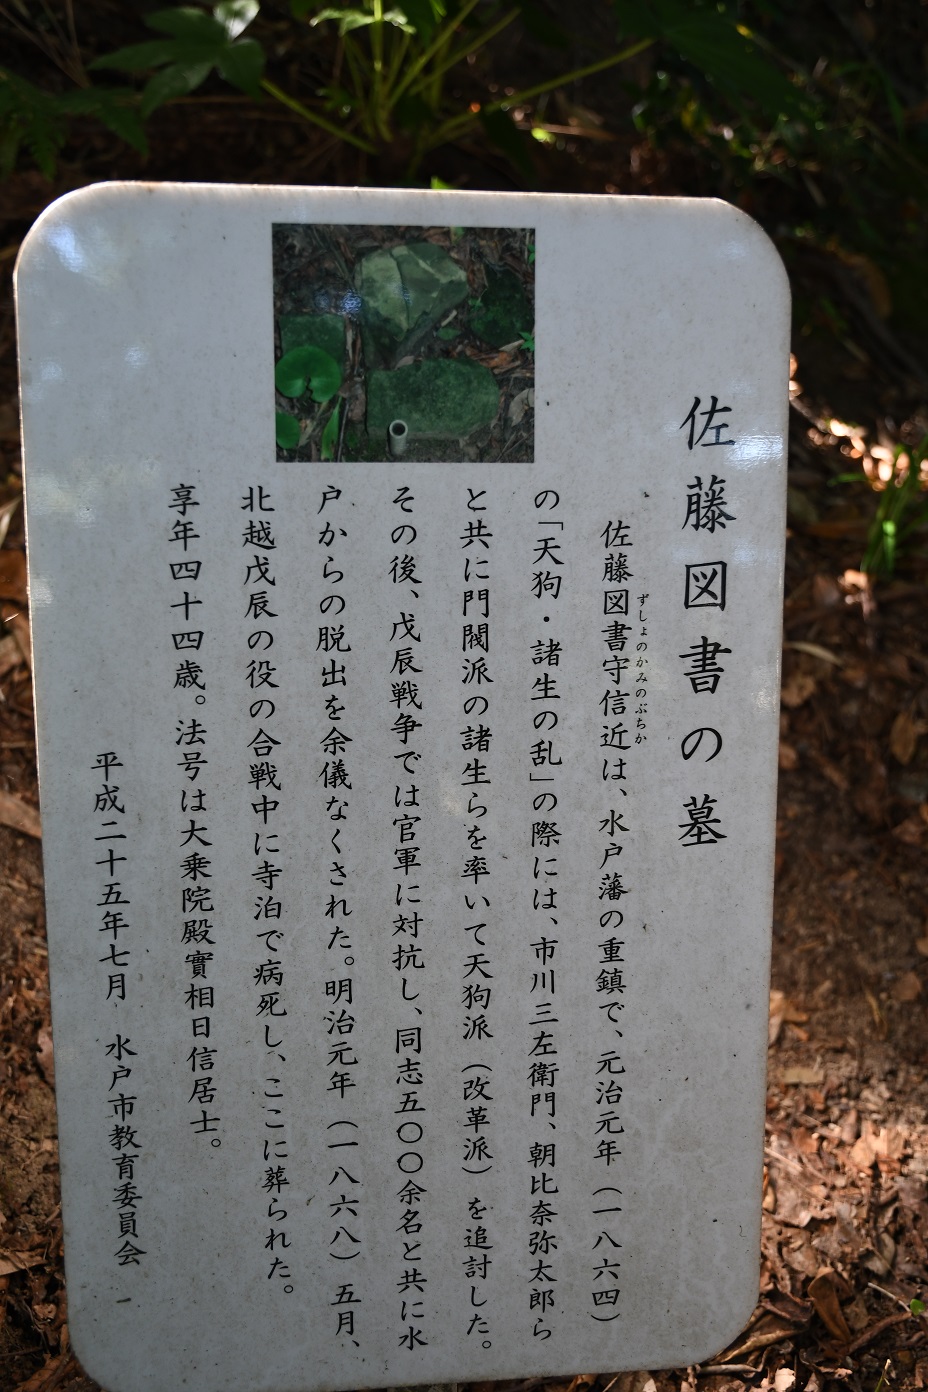 佐藤図書の墓
ずしょのかみのぶちか
佐藤図書守信近は、水戸藩の重鎮で、元治元年（一八六四）
の「天狗・諸生の乱」の際には、市川三左衛門、朝比奈弥太郎ら
と共に門閥派の諸生らを率いて天狗派（改革派）を追討した。
その後、戊辰戦争では官軍に対抗し、同志五〇〇余名と共に水
戸からの脱出を余儀なくされた。明治元年（一八六八）五月、
北越戊辰の役の合戦中に寺泊で病死し、ここに葬られた。
享年四十四歳。法号は大乗院殿實相日信居士。
平成二十五年七月　水戸市教育委員会